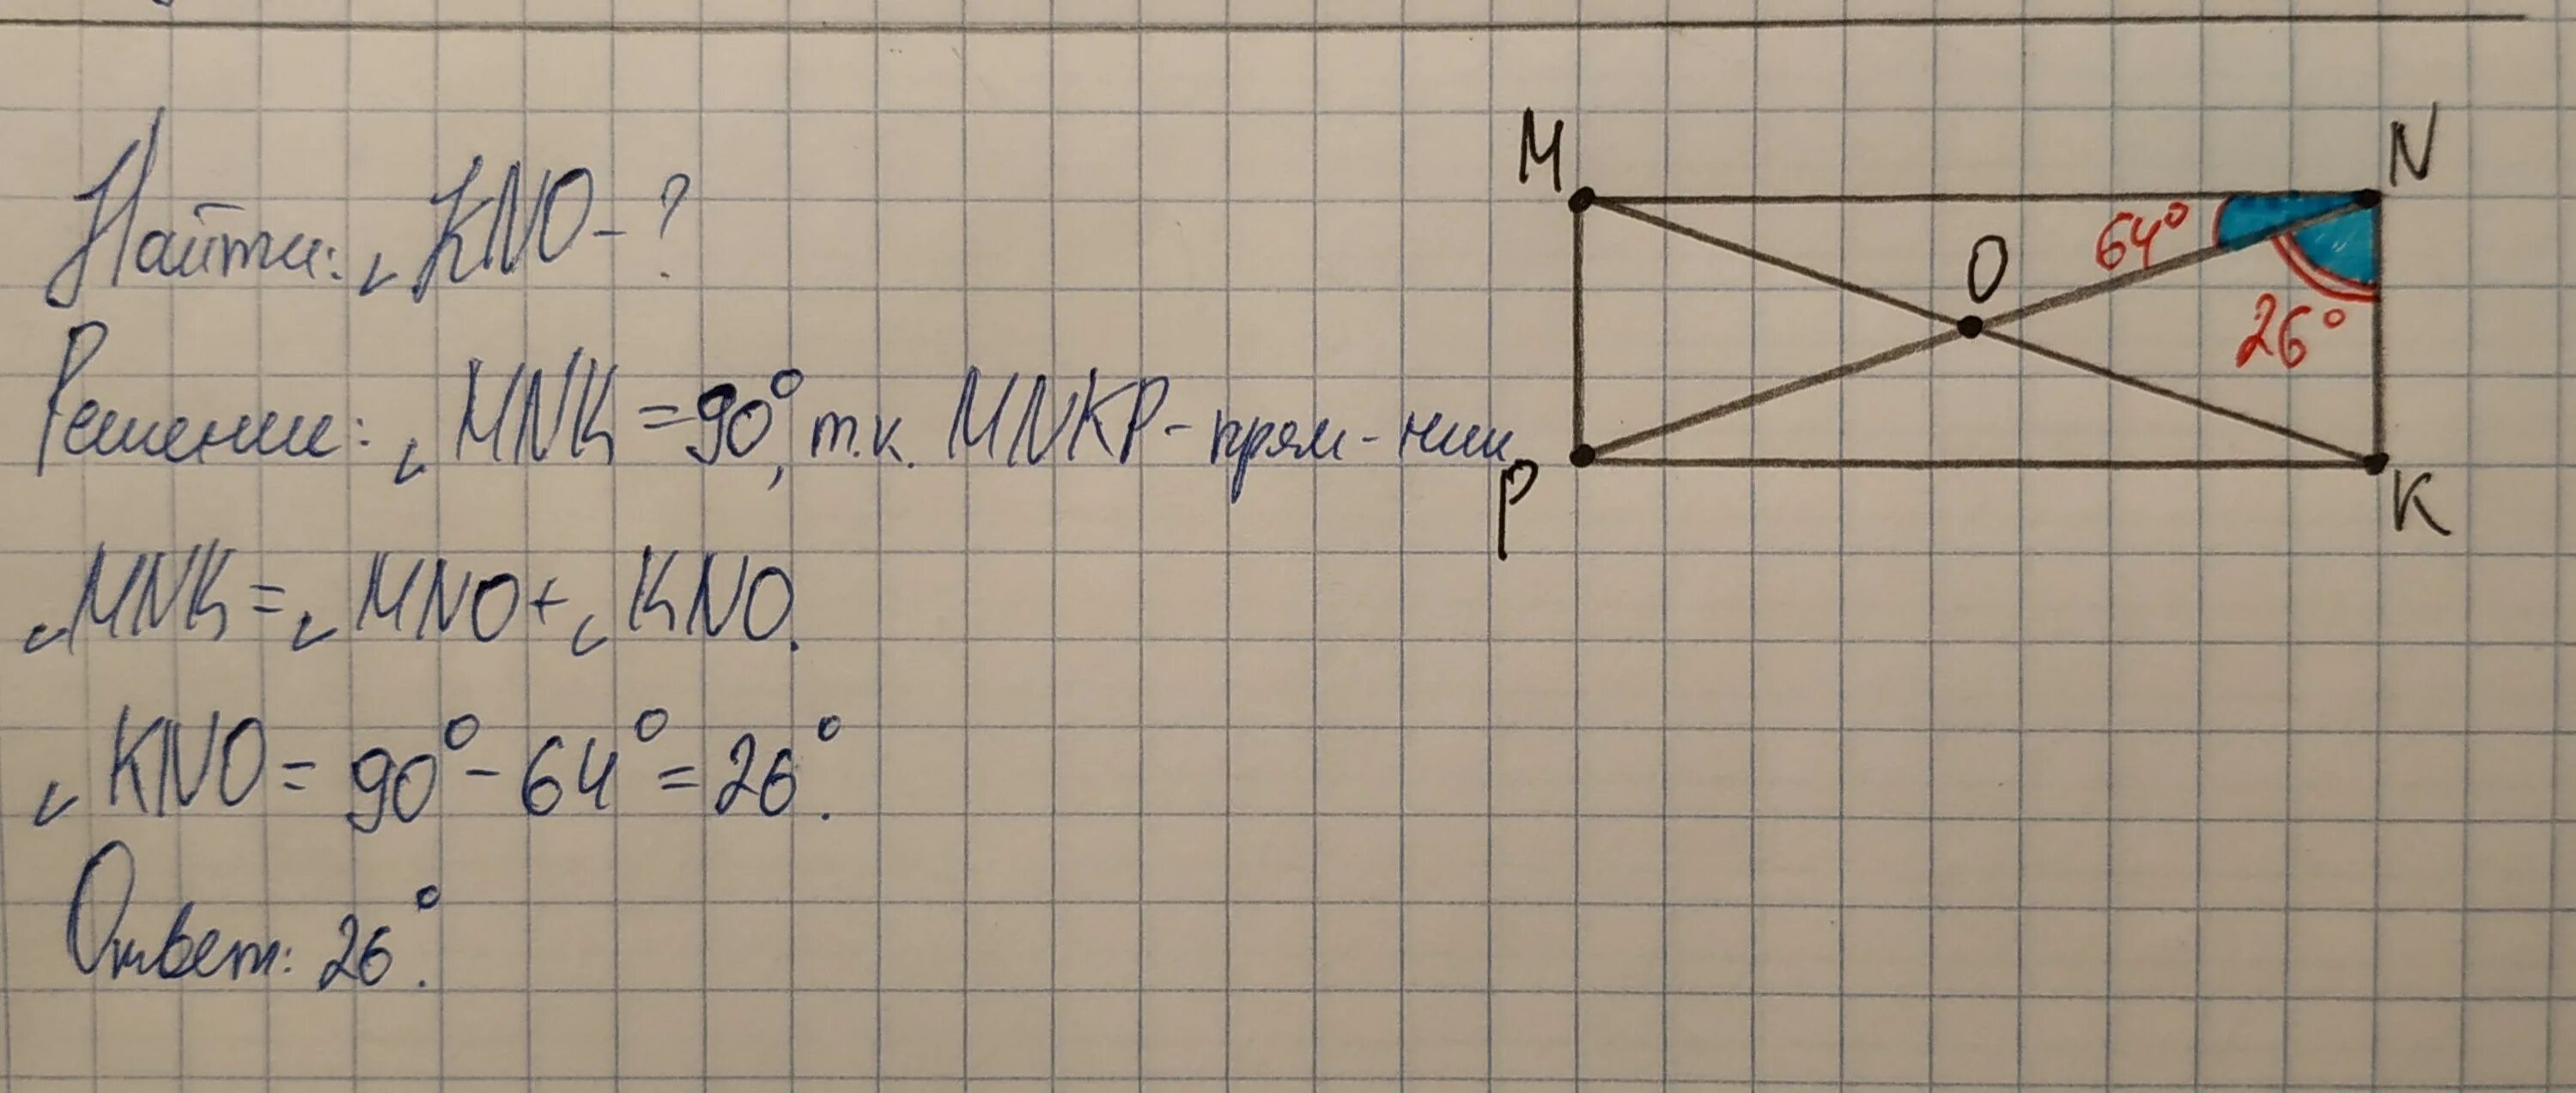 Найти: ∠KNO - ?
Решение: ∠MNK = 90°, т.к. MNKP - прям-ник
∠MNK = ∠MNO + ∠KNO.
∠KNO = 90° - 64° = 26°.
Ответ: 26°.
M
N
64°
O
26°
P
K